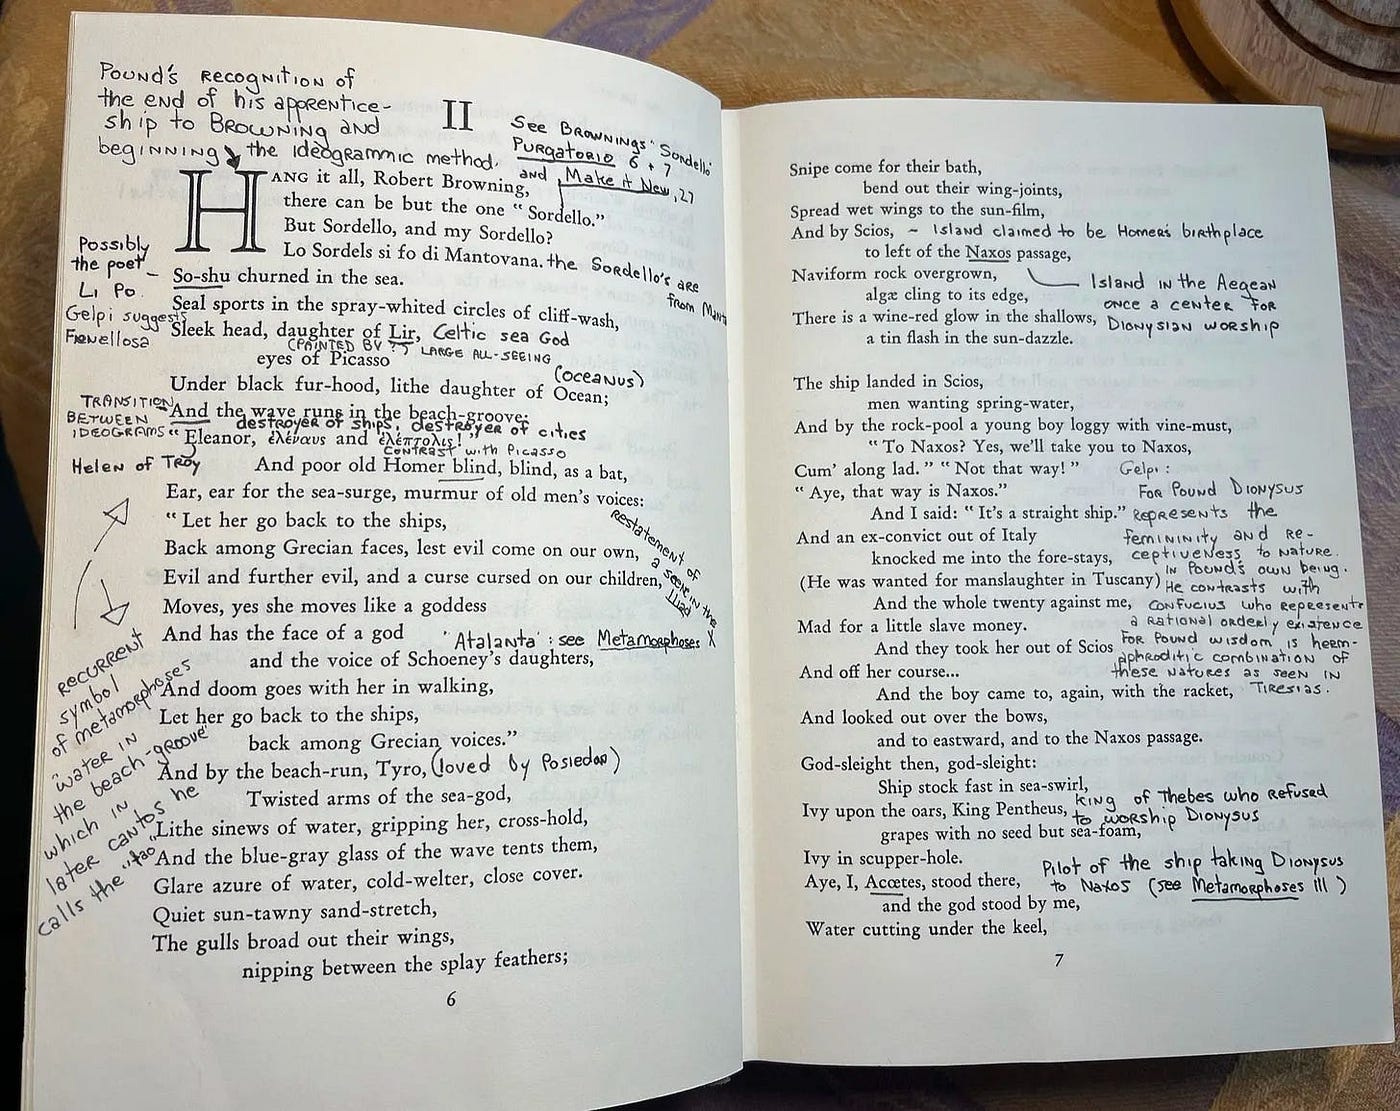 Pound's recognition of
the end of his apprentice-
ship to Browning and
beginning the ideogrammic method.
II
See Brownings' Sordello
Purgatorio 6 + 7
and Make it New, 27
HANG it all, Robert Browning,
there can be but the one "Sordello."
But Sordello, and my Sordello?
Lo Sordels si fo di Mantovana. the Sordello's are
from Mantu
Possibly
the poet –
Li Po.
Gelpi suggests
Fienellosa
So-shu churned in the sea.
Seal sports in the spray-whited circles of cliff-wash,
Sleek head, daughter of Lir, Celtic sea God
(painted by ?) large all-seeing
eyes of Picasso
(oceanus)
Under black fur-hood, lithe daughter of Ocean;
Transition
between
ideograms
And the wave runs in the beach-groove:
destroyer of ships, destroyer of cities
"Eleanor, ἑλέναυς and ἑλέπτολις!"
contrast with Picasso
Helen of Troy
And poor old Homer blind, blind, as a bat,
Ear, ear for the sea-surge, murmur of old men's voices:
"Let her go back to the ships,
Back among Grecian faces, lest evil come on our own,
Evil and further evil, and a curse cursed on our children,
restatement of
a scene in the
Iliad
Moves, yes she moves like a goddess
And has the face of a god
'Atalanta': see Metamorphoses X
and the voice of Schoeney's daughters,
And doom goes with her in walking,
Let her go back to the ships,
back among Grecian voices."
And by the beach-run, Tyro, (loved by Posiedon)
Twisted arms of the sea-god,
Lithe sinews of water, gripping her, cross-hold,
And the blue-gray glass of the wave tents them,
Glare azure of water, cold-welter, close cover.
Quiet sun-tawny sand-stretch,
The gulls broad out their wings,
nipping between the splay feathers;
recurrent
symbol
of metamorphoses
"water in
the beach-groove"
which in
later cantos he
calls the "tao"
6
Snipe come for their bath,
bend out their wing-joints,
Spread wet wings to the sun-film,
And by Scios, ~ Island claimed to be Homer's birthplace
to left of the Naxos passage,
Naviform rock overgrown,
algæ cling to its edge,
There is a wine-red glow in the shallows,
a tin flash in the sun-dazzle.
Island in the Aegean
once a center for
Dionysian worship
The ship landed in Scios,
men wanting spring-water,
And by the rock-pool a young boy loggy with vine-must,
"To Naxos? Yes, we'll take you to Naxos,
Cum' along lad." "Not that way!"
"Aye, that way is Naxos."
And I said: "It's a straight ship."
And an ex-convict out of Italy
knocked me into the fore-stays,
(He was wanted for manslaughter in Tuscany)
And the whole twenty against me,
Mad for a little slave money.
And they took her out of Scios
And off her course...
Gelpi:
For Pound Dionysus
represents the
femininity and re-
ceptiveness to nature.
in Pound's own being.
He contrasts with
Confucius who represents
a rational orderly existence
For Pound wisdom is heem-
aphroditic combination of
these natures as seen in
Tiresias.
And the boy came to, again, with the racket,
And looked out over the bows,
and to eastward, and to the Naxos passage.
God-sleight then, god-sleight:
Ship stock fast in sea-swirl,
Ivy upon the oars, King Pentheus, King of Thebes who refused
to worship Dionysus
grapes with no seed but sea-foam,
Ivy in scupper-hole.
Aye, I, Acœtes, stood there,
Pilot of the ship taking Dionysus
to Naxos (see Metamorphoses III)
and the god stood by me,
Water cutting under the keel,
7